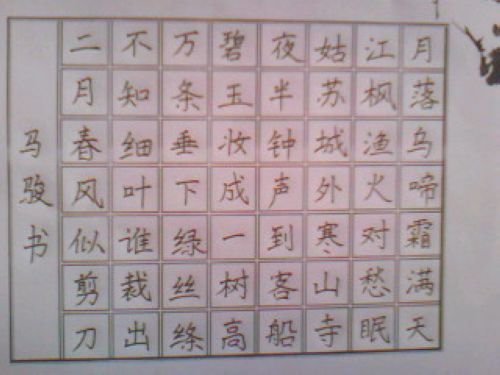 月落乌啼霜满天
江枫渔火对愁眠
姑苏城外寒山寺
夜半钟声到客船
碧玉妆成一树高
万条垂下绿丝绦
不知细叶谁裁出
二月春风似剪刀
马骏书